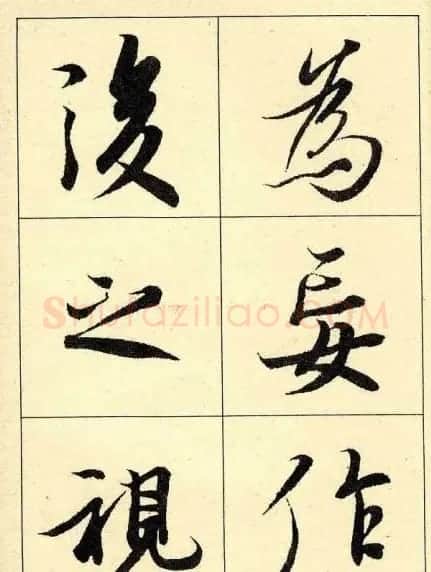 為妄作
後之視
Shufaziliao.COM